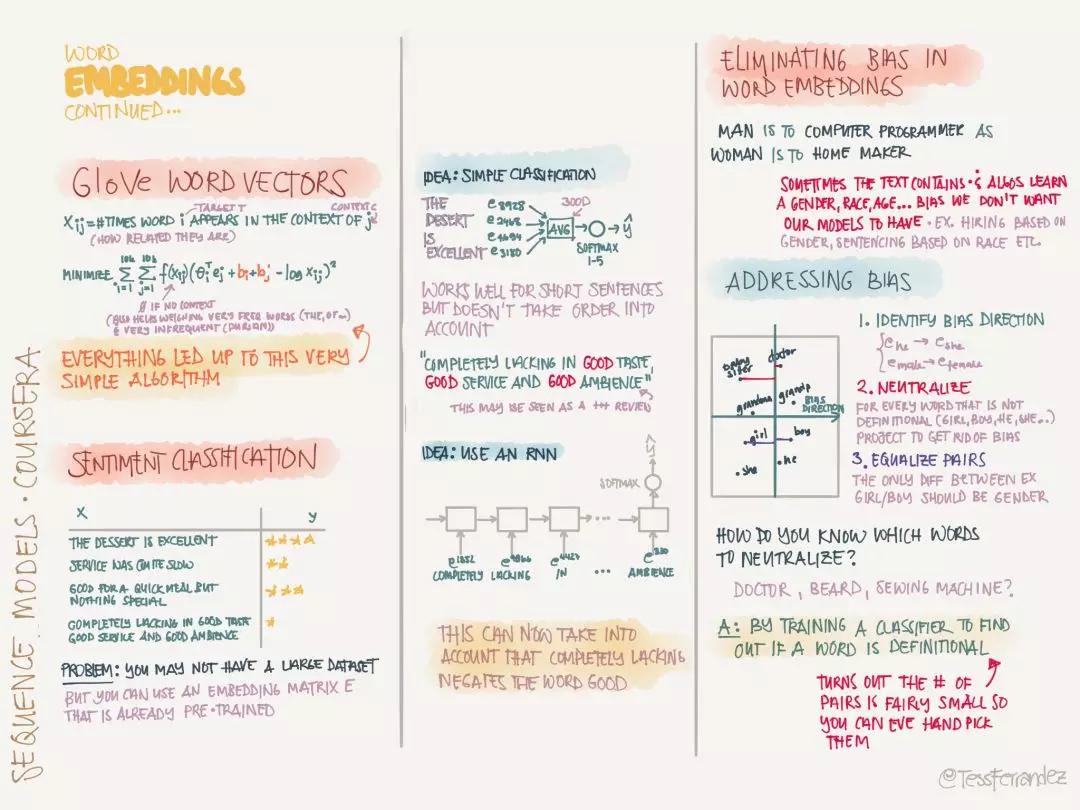 WORD
EMBEDDINGS
CONTINUED...
GloVe WORD VECTORS
TARGET T
CONTEXT C
Xij = #TIMES WORD i APPEARS IN THE CONTEXT OF j
(HOW RELATED THEY ARE)
MINIMIZE Σ i=1 10k Σ j=1 10k f(Xij)(θiᵀej + bi + bj' - log Xij)²
∅ IF NO CONTEXT
(ALSO HELPS WEIGHING VERY FREQ WORDS (THE, OF...)
& VERY INFREQUENT (DURIAN))
EVERYTHING LED UP TO THIS VERY
SIMPLE ALGORITHM
SENTIMENT CLASSIFICATION
X y
THE DESSERT IS EXCELLENT ★★★★
SERVICE WAS QUITE SLOW ★★
GOOD FOR A QUICK MEAL BUT ★★★
NOTHING SPECIAL
COMPLETELY LACKING IN GOOD TASTE ★
GOOD SERVICE AND GOOD AMBIENCE
PROBLEM: YOU MAY NOT HAVE A LARGE DATASET
BUT YOU CAN USE AN EMBEDDING MATRIX E
THAT IS ALREADY PRE-TRAINED
SEQUENCE MODELS · COURSERA
IDEA: SIMPLE CLASSIFICATION
THE e8928
DESERT e2468
IS e4694
EXCELLENT e3180
300D
AVG
ŷ
SOFTMAX
1-5
WORKS WELL FOR SHORT SENTENCES
BUT DOESN'T TAKE ORDER INTO
ACCOUNT
"COMPLETELY LACKING IN GOOD TASTE,
GOOD SERVICE AND GOOD AMBIENCE"
THIS MAY BE SEEN AS A +++ REVIEW
IDEA: USE AN RNN
ŷ
SOFTMAX
...
e1852 e4966 e4427 ... e330
COMPLETELY LACKING IN ... AMBIENCE
THIS CAN NOW TAKE INTO
ACCOUNT THAT COMPLETELY LACKING
NEGATES THE WORD GOOD
ELIMINATING BIAS IN
WORD EMBEDDINGS
MAN IS TO COMPUTER PROGRAMMER AS
WOMAN IS TO HOME MAKER
SOMETIMES THE TEXT CONTAINS & ALGOS LEARN
A GENDER, RACE, AGE... BIAS WE DON'T WANT
OUR MODELS TO HAVE · EX. HIRING BASED ON
GENDER, SENTENCING BASED ON RACE ETC.
ADDRESSING BIAS
baby
sitter
doctor
grandma
grandp
BIAS
DIRECTION
girl
boy
she
he
1. IDENTIFY BIAS DIRECTION
{ehe → eshe
emale → efemale
2. NEUTRALIZE
FOR EVERY WORD THAT IS NOT
DEFINITIONAL (GIRL, BOY, HE, SHE...)
PROJECT TO GET RID OF BIAS
3. EQUALIZE PAIRS
THE ONLY DIFF BETWEEN EX
GIRL/BOY SHOULD BE GENDER
HOW DO YOU KNOW WHICH WORDS
TO NEUTRALIZE?
DOCTOR, BEARD, SEWING MACHINE?
A: BY TRAINING A CLASSIFIER TO FIND
OUT IF A WORD IS DEFINITIONAL
TURNS OUT THE # OF
PAIRS IS FAIRLY SMALL SO
YOU CAN EVE HAND PICK
THEM
@TessFerrandez